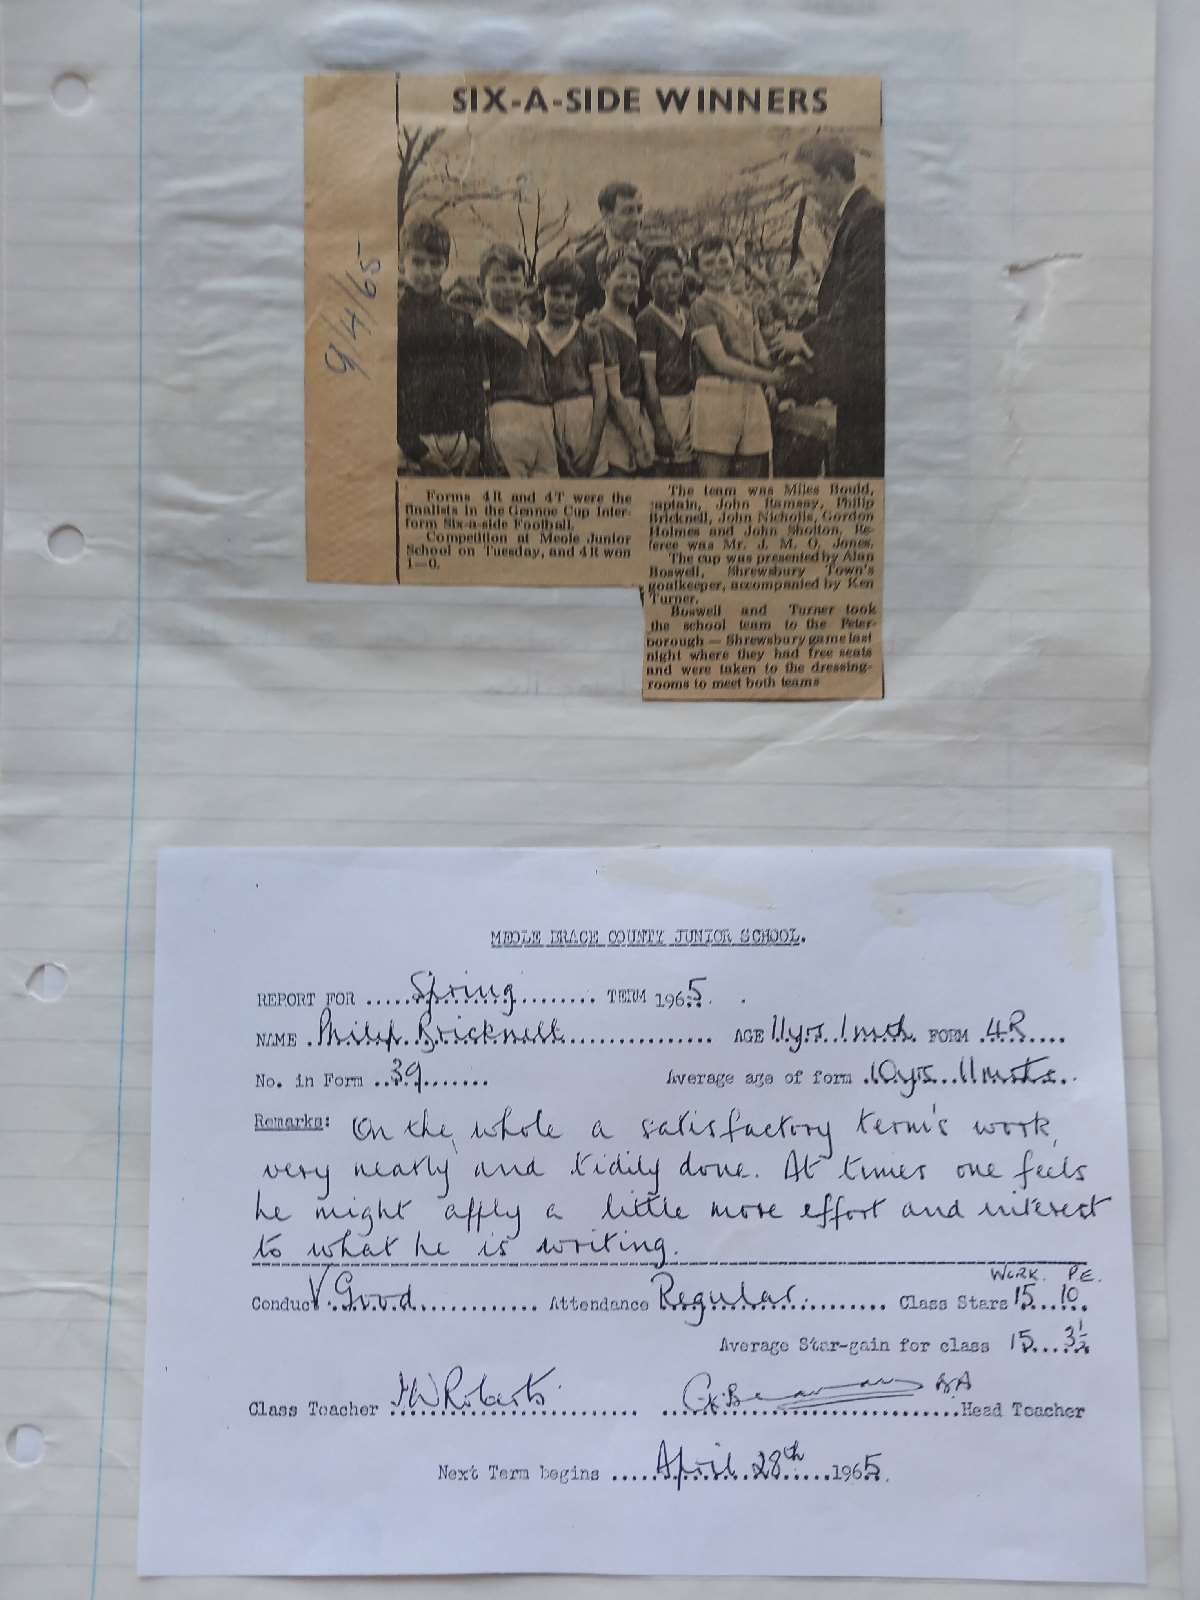 SIX-A-SIDE WINNERS
9/4/65
Forms 4R and 4T were the
finalists in the Gennoe Cup Inter-
form Six-a-side Football.
Competition at Meole Junior
School on Tuesday, and 4R won
1—0.
The team was Miles Bould,
captain, John Ramsay, Philip
Bricknell, John Nicholls, Gordon
Holmes and John Sholton, Re-
feree was Mr. J. M. O. Jones.
The cup was presented by Alan
Boswell, Shrewsbury Town's
goalkeeper, accompanied by Ken
Turner.
Boswell and Turner took
the school team to the Peter-
borough — Shrewsbury game last
night where they had free seats
and were taken to the dressing-
rooms to meet both teams
MEOLE BRACE COUNTY JUNIOR SCHOOL.
REPORT FOR Spring TERM 1965.
NAME Philip Bricknell AGE 11yrs 1mth FORM 4R
No. in Form 39 Average age of form 10yrs 11mths
Remarks: On the whole a satisfactory term's work,
very neatly and tidily done. At times one feels
he might apply a little more effort and interest
to what he is writing.
WORK. P.E.
Conduct V.Good Attendance Regular Class Stars 15 10
Average Star-gain for class 15 3½
Class Teacher HW Roberts Head Teacher
Next Term begins April 28th 1965.